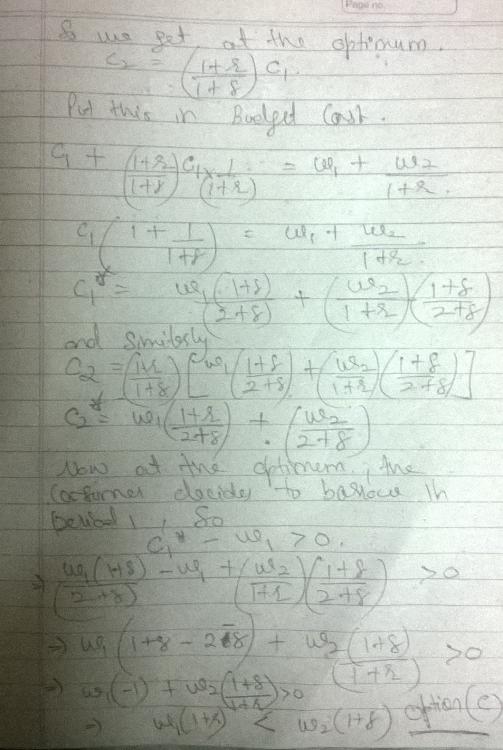 Page no.
So we get at the optimum.
C₂ = ((1+r)/(1+δ)) C₁.
Put this in Budget Const.
C₁ + ((1+r)/(1+δ)) C₁ × 1/(1+r) = w₁ + w₂/(1+r).
C₁ (1 + 1/(1+δ)) = w₁ + w₂/(1+r).
C₁* = w₁ ((1+δ)/(2+δ)) + (w₂/(1+r)) ((1+δ)/(2+δ))
and similarly
C₂ = ((1+r)/(1+δ)) [w₁ ((1+δ)/(2+δ)) + (w₂/(1+r)) ((1+δ)/(2+δ))]
C₂* = w₁ ((1+r)/(2+δ)) + (w₂/(2+δ))
Now at the optimum, the
consumer decides to borrow in
period 1, So
C₁* - w₁ > 0.
⇒ w₁(1+δ)/(2+δ) - w₁ + (w₂/(1+r)) ((1+δ)/(2+δ)) > 0
⇒ w₁ (1+δ-2-δ) + w₂ ((1+δ)/(1+r)) > 0
⇒ w₁(-1) + w₂ ((1+δ)/(1+r)) > 0
⇒ w₁(1+r) < w₂(1+δ) option (c)